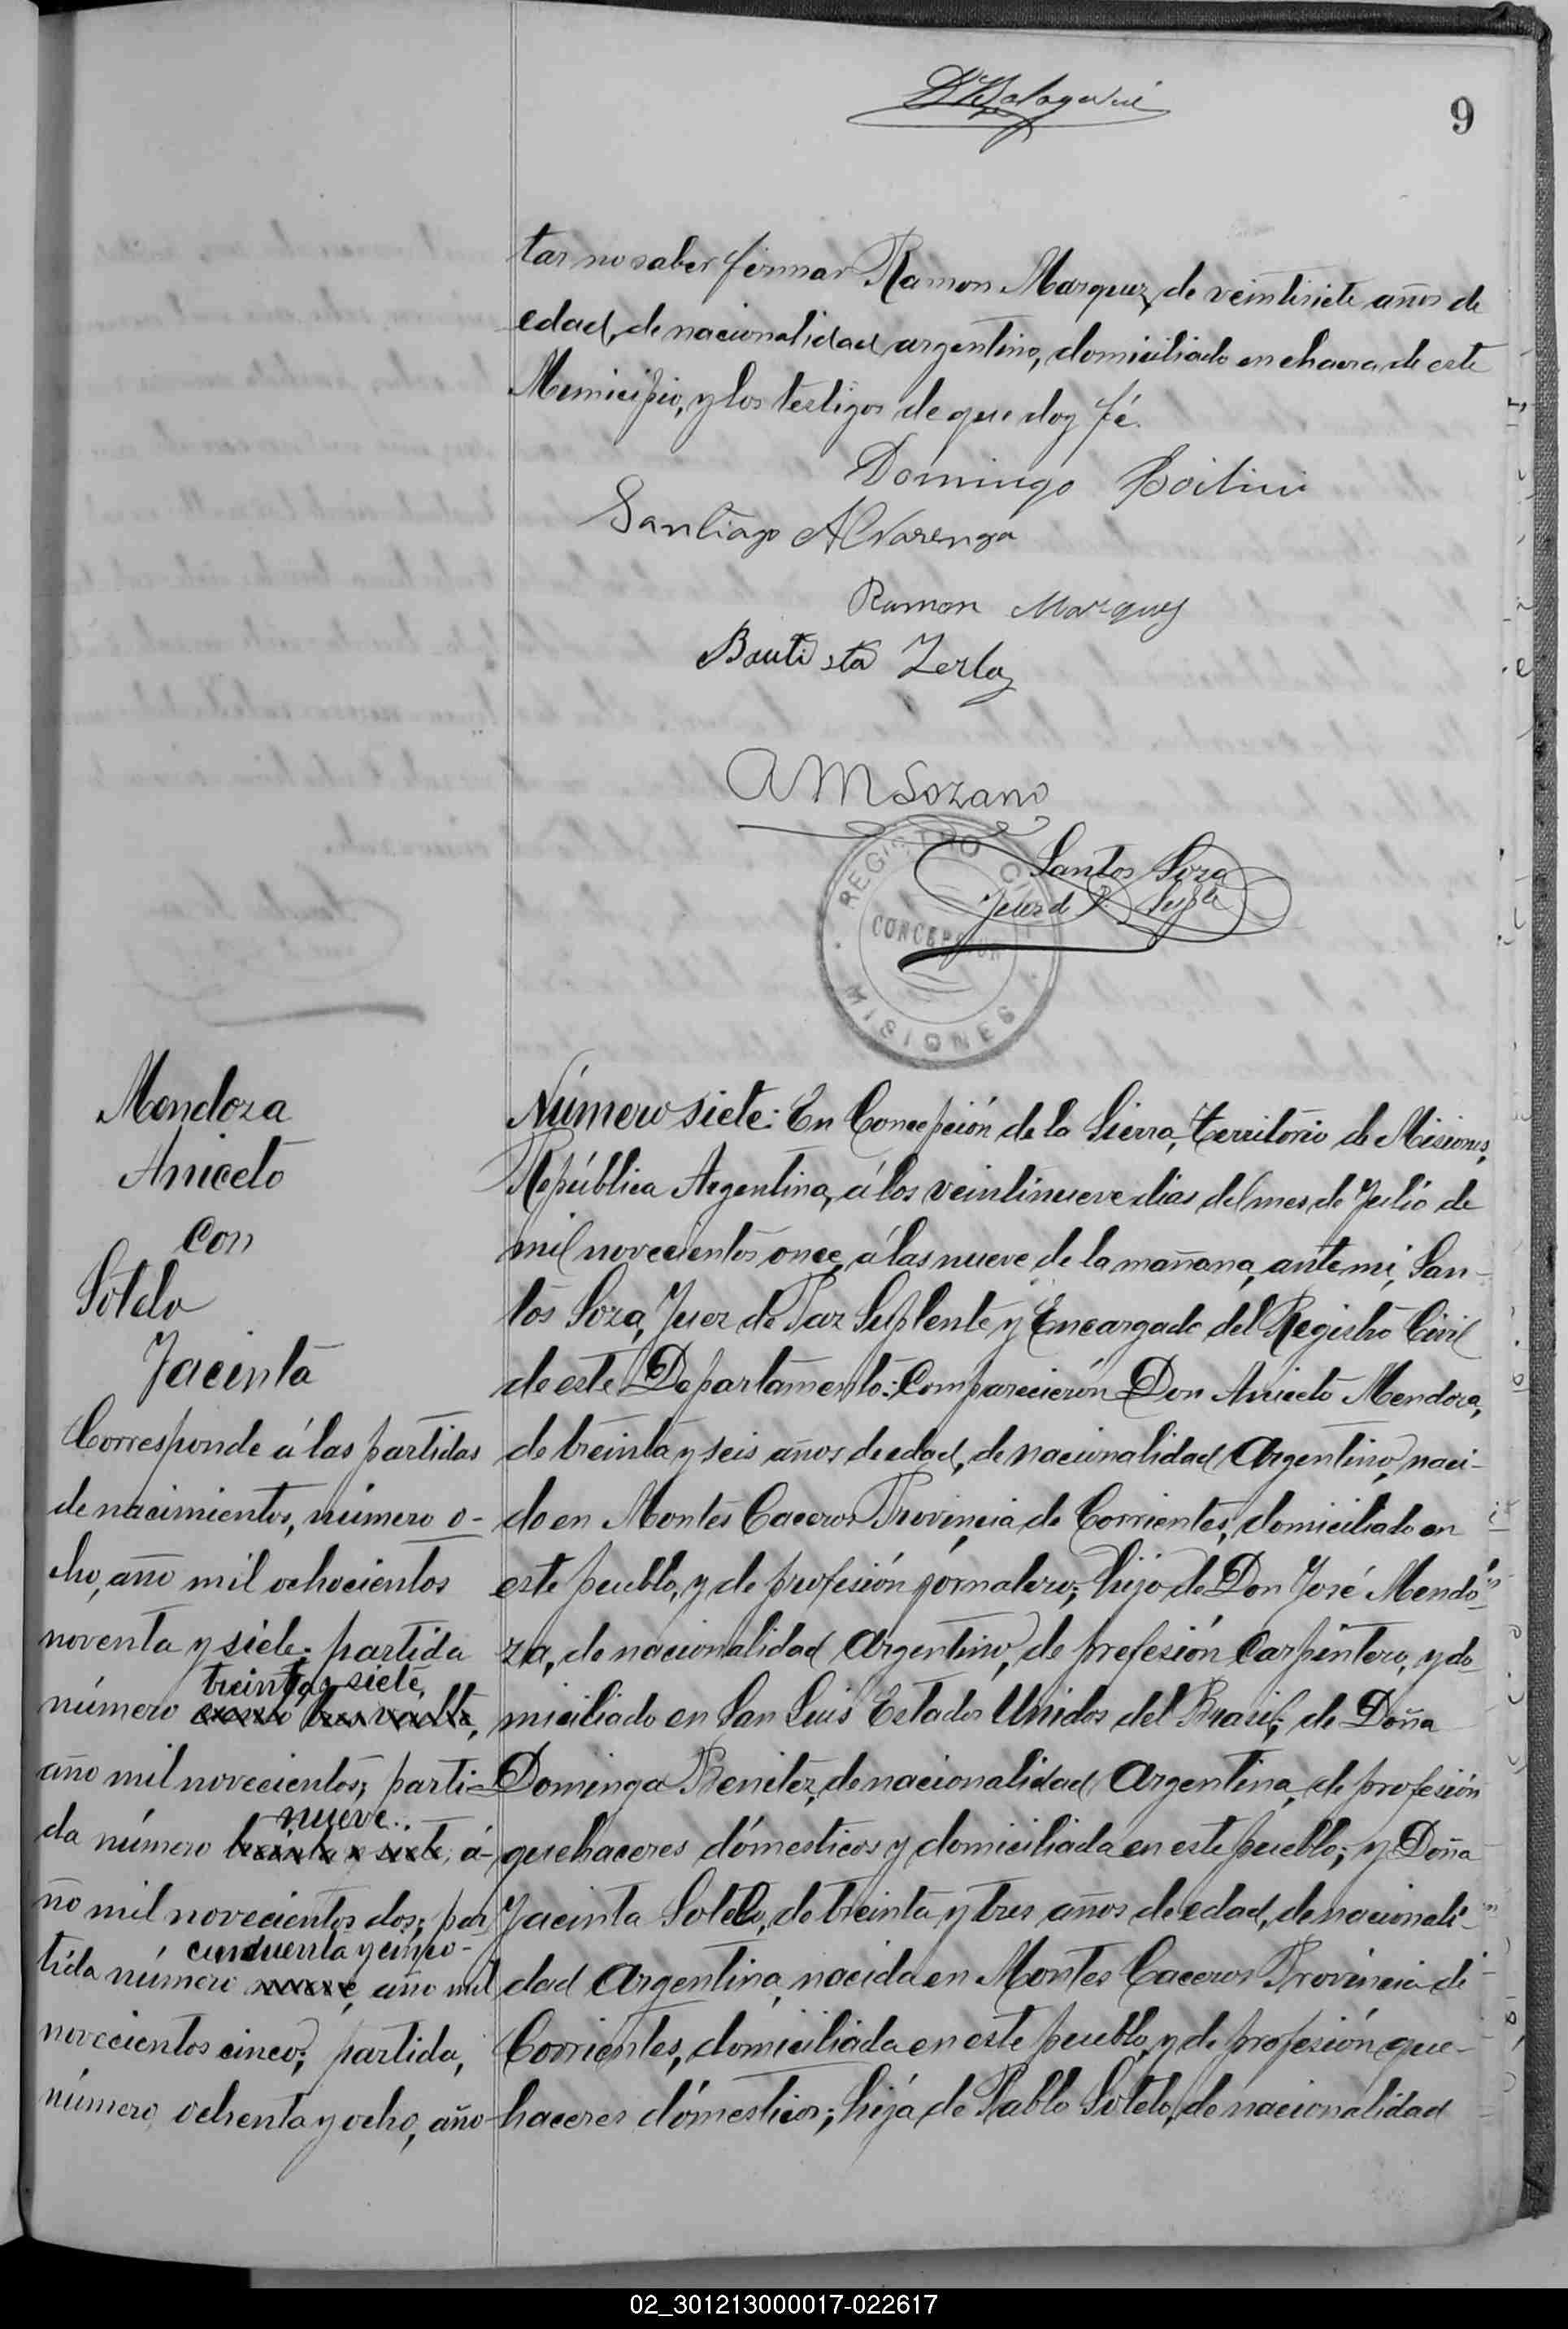 9
tar no saber firmar Ramon Marquez, de veintisiete años de
edad, de nacionalidad argentino, domiciliado en chacra de este
Municipio, y los testigos de que doy fé.
Domingo
Santiago Alvarenga
Ramon Marquez
Bautista
A M Lozano
Santos Loza
Juez de P. Suplte
REGISTRO CIVIL
CONCEPCION
MISIONES
Mendoza
Aniceto
con
Sotelo
Jacinta
Corresponde á las partidas
de nacimientos, número o-
cho, año mil ochocientos
noventa y siete; partida
treinta y siete,
número
año mil novecientos; parti-
nueve..
da número treinta y siete, a-
ño mil novecientos dos; par
cincuenta y cinco-
tida número nueve, año mil
novecientos cinco; partida,
número, ochenta y ocho, año
Número siete: En Concepción de la Sierra, Territorio de Misiones,
República Argentina, á los veintinueve dias del mes de Julio de
mil novecientos once, á las nueve de la mañana, ante mi, San-
tos Loza, Juez de Paz Suplente y Encargado del Registro Civil
de este Departamento: Comparecierón Don Aniceto Mendoza,
de treinta y seis años de edad, de nacionalidad Argentino, naci-
do en Montes Caceros Provincia de Corrientes, domiciliado en
este pueblo, y de profesión jórnalero; hijo de Don José Mendo-
za, de nacionalidad Argentino, de profesión Carpintero, y do-
miciliado en San Luis Estados Unidos del Brasil; de Doña
Dominga Benitez, de nacionalidad Argentina, de profesión
quehaceres dómesticos y domiciliada en este pueblo; y Doña
Jacinta Sotelo, de treinta y tres años de edad, de nacionali-
dad Argentina, nacida en Montes Caceros Provincia de
Corrientes, domiciliada en este pueblo, y de profesión que-
haceres dómesticos; hija de Pablo Sotelo, de nacionalidad
02_301213000017-022617